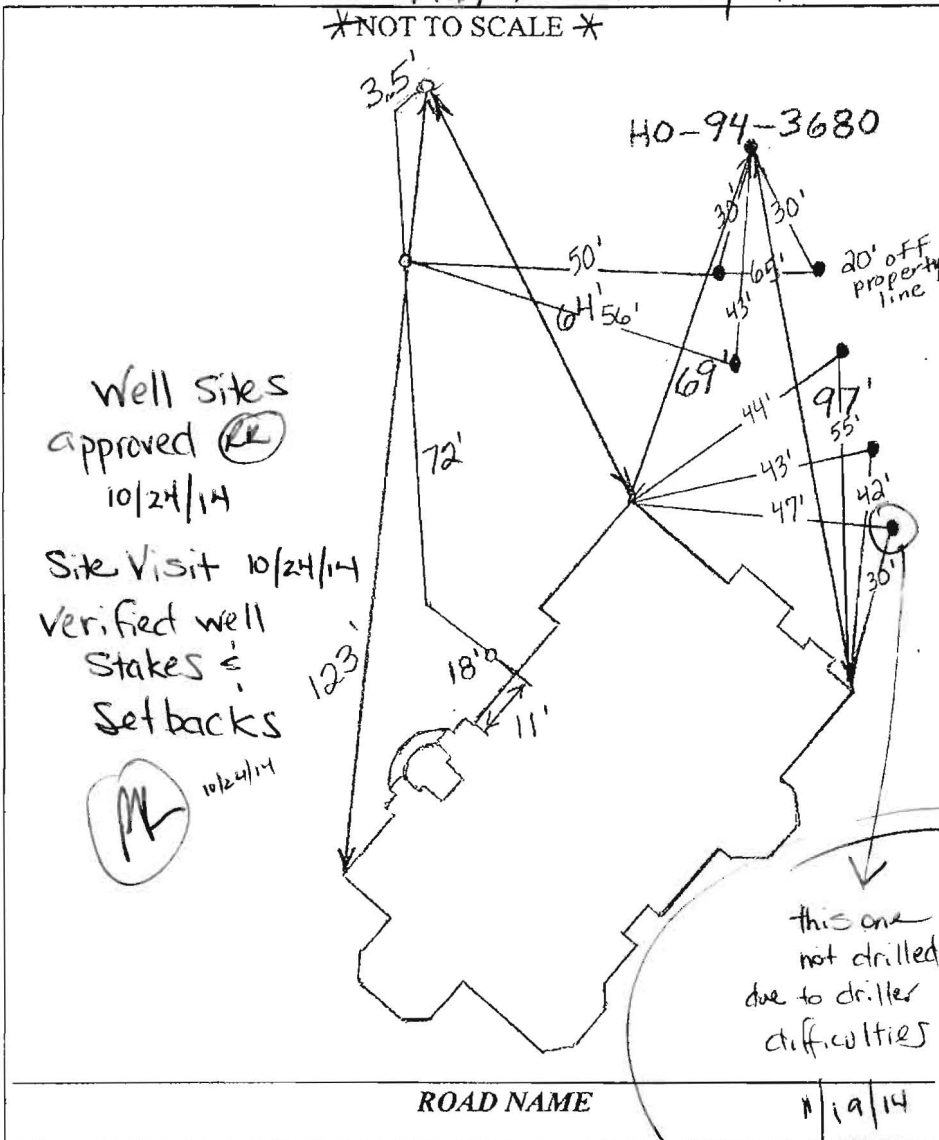 *NOT TO SCALE*
3.5'
HO-94-3680
30'
30'
50'
65'
20' off
property
line
64'
56'
43'
69'
97'
44'
55'
43'
42'
47'
30'
72'
Well Sites
approved
10/24/14
Site Visit 10/24/14
Verified well
Stakes &
Setbacks
10/24/14
123'
18'
11'
this one
not drilled
due to driller
difficulties
ROAD NAME
11/19/14